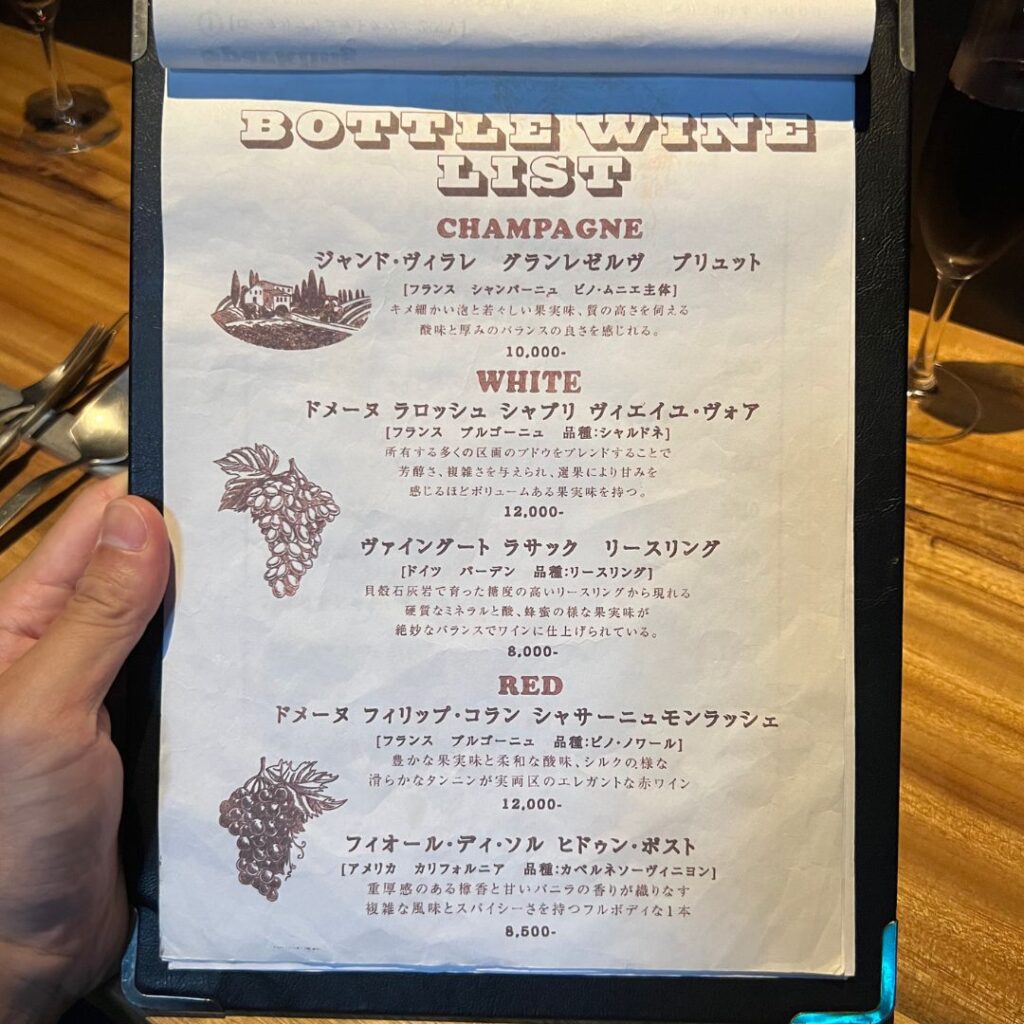 BOTTLE WINE
LIST
CHAMPAGNE
ジャンド・ヴィラレ グランレゼルヴ ブリュット
[フランス シャンパーニュ ピノ・ムニエ主体]
キメ細かい泡と若々しい果実味、質の高さを伺える
酸味と厚みのバランスの良さを感じれる。
10,000-
WHITE
ドメーヌ ラロッシュ シャブリ ヴィエイユ・ヴォア
[フランス ブルゴーニュ 品種:シャルドネ]
所有する多くの区画のブドウをブレンドすることで
芳醇さ、複雑さを与えられ、選果により甘みを
感じるほどボリュームある果実味を持つ。
12,000-
ヴァイングート ラサック リースリング
[ドイツ バーデン 品種:リースリング]
貝殻石灰岩で育った糖度の高いリースリングから現れる
硬質なミネラルと酸、蜂蜜の様な果実味が
絶妙なバランスでワインに仕上げられている。
8,000-
RED
ドメーヌ フィリップ・コラン シャサーニュモンラッシェ
[フランス ブルゴーニュ 品種:ピノ・ノワール]
豊かな果実味と柔和な酸味、シルクの様な
滑らかなタンニンが実両区のエレガントな赤ワイン
12,000-
フィオール・ディ・ソル ヒドゥン・ポスト
[アメリカ カリフォルニア 品種:カベルネソーヴィニヨン]
重厚感のある樽香と甘いバニラの香りが織りなす
複雑な風味とスパイシーさを持つフルボディな1本
8,500-